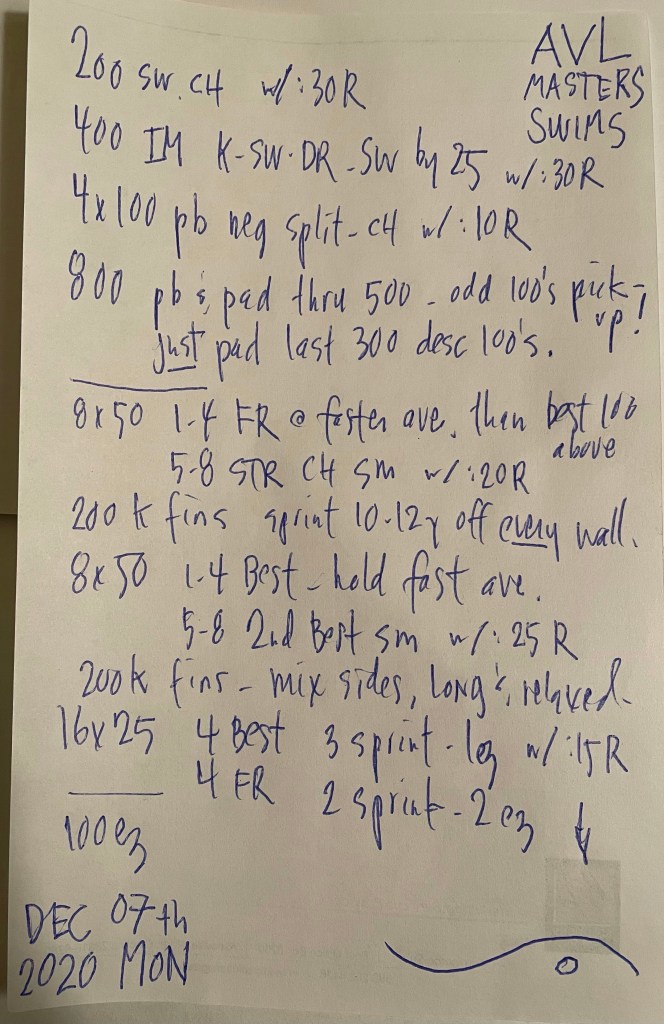 200 SW. CH w/ :30 R
AVL
MASTERS
SWIMS
400 IM K-SW-DR-SW by 25 w/ :30R
4x100 pb neg split - CH w/ :10R
800 pb & pad thru 500 - odd 100's pick-
up!
just pad last 300 desc 100's.
8x50 1-4 FR @ faster ave. than best 100
above
5-8 STR CH sm w/ :20R
200 K fins sprint 10-12y off every wall.
8x50 1-4 Best - hold fast ave.
5-8 2nd Best sm w/ :25 R
200 K fins - mix sides, long & relaxed.
16x25 4 Best 3 sprint - 1ez w/ :15R
4 FR 2 sprint - 2 ez
100 ez
DEC 07th
2020 MON